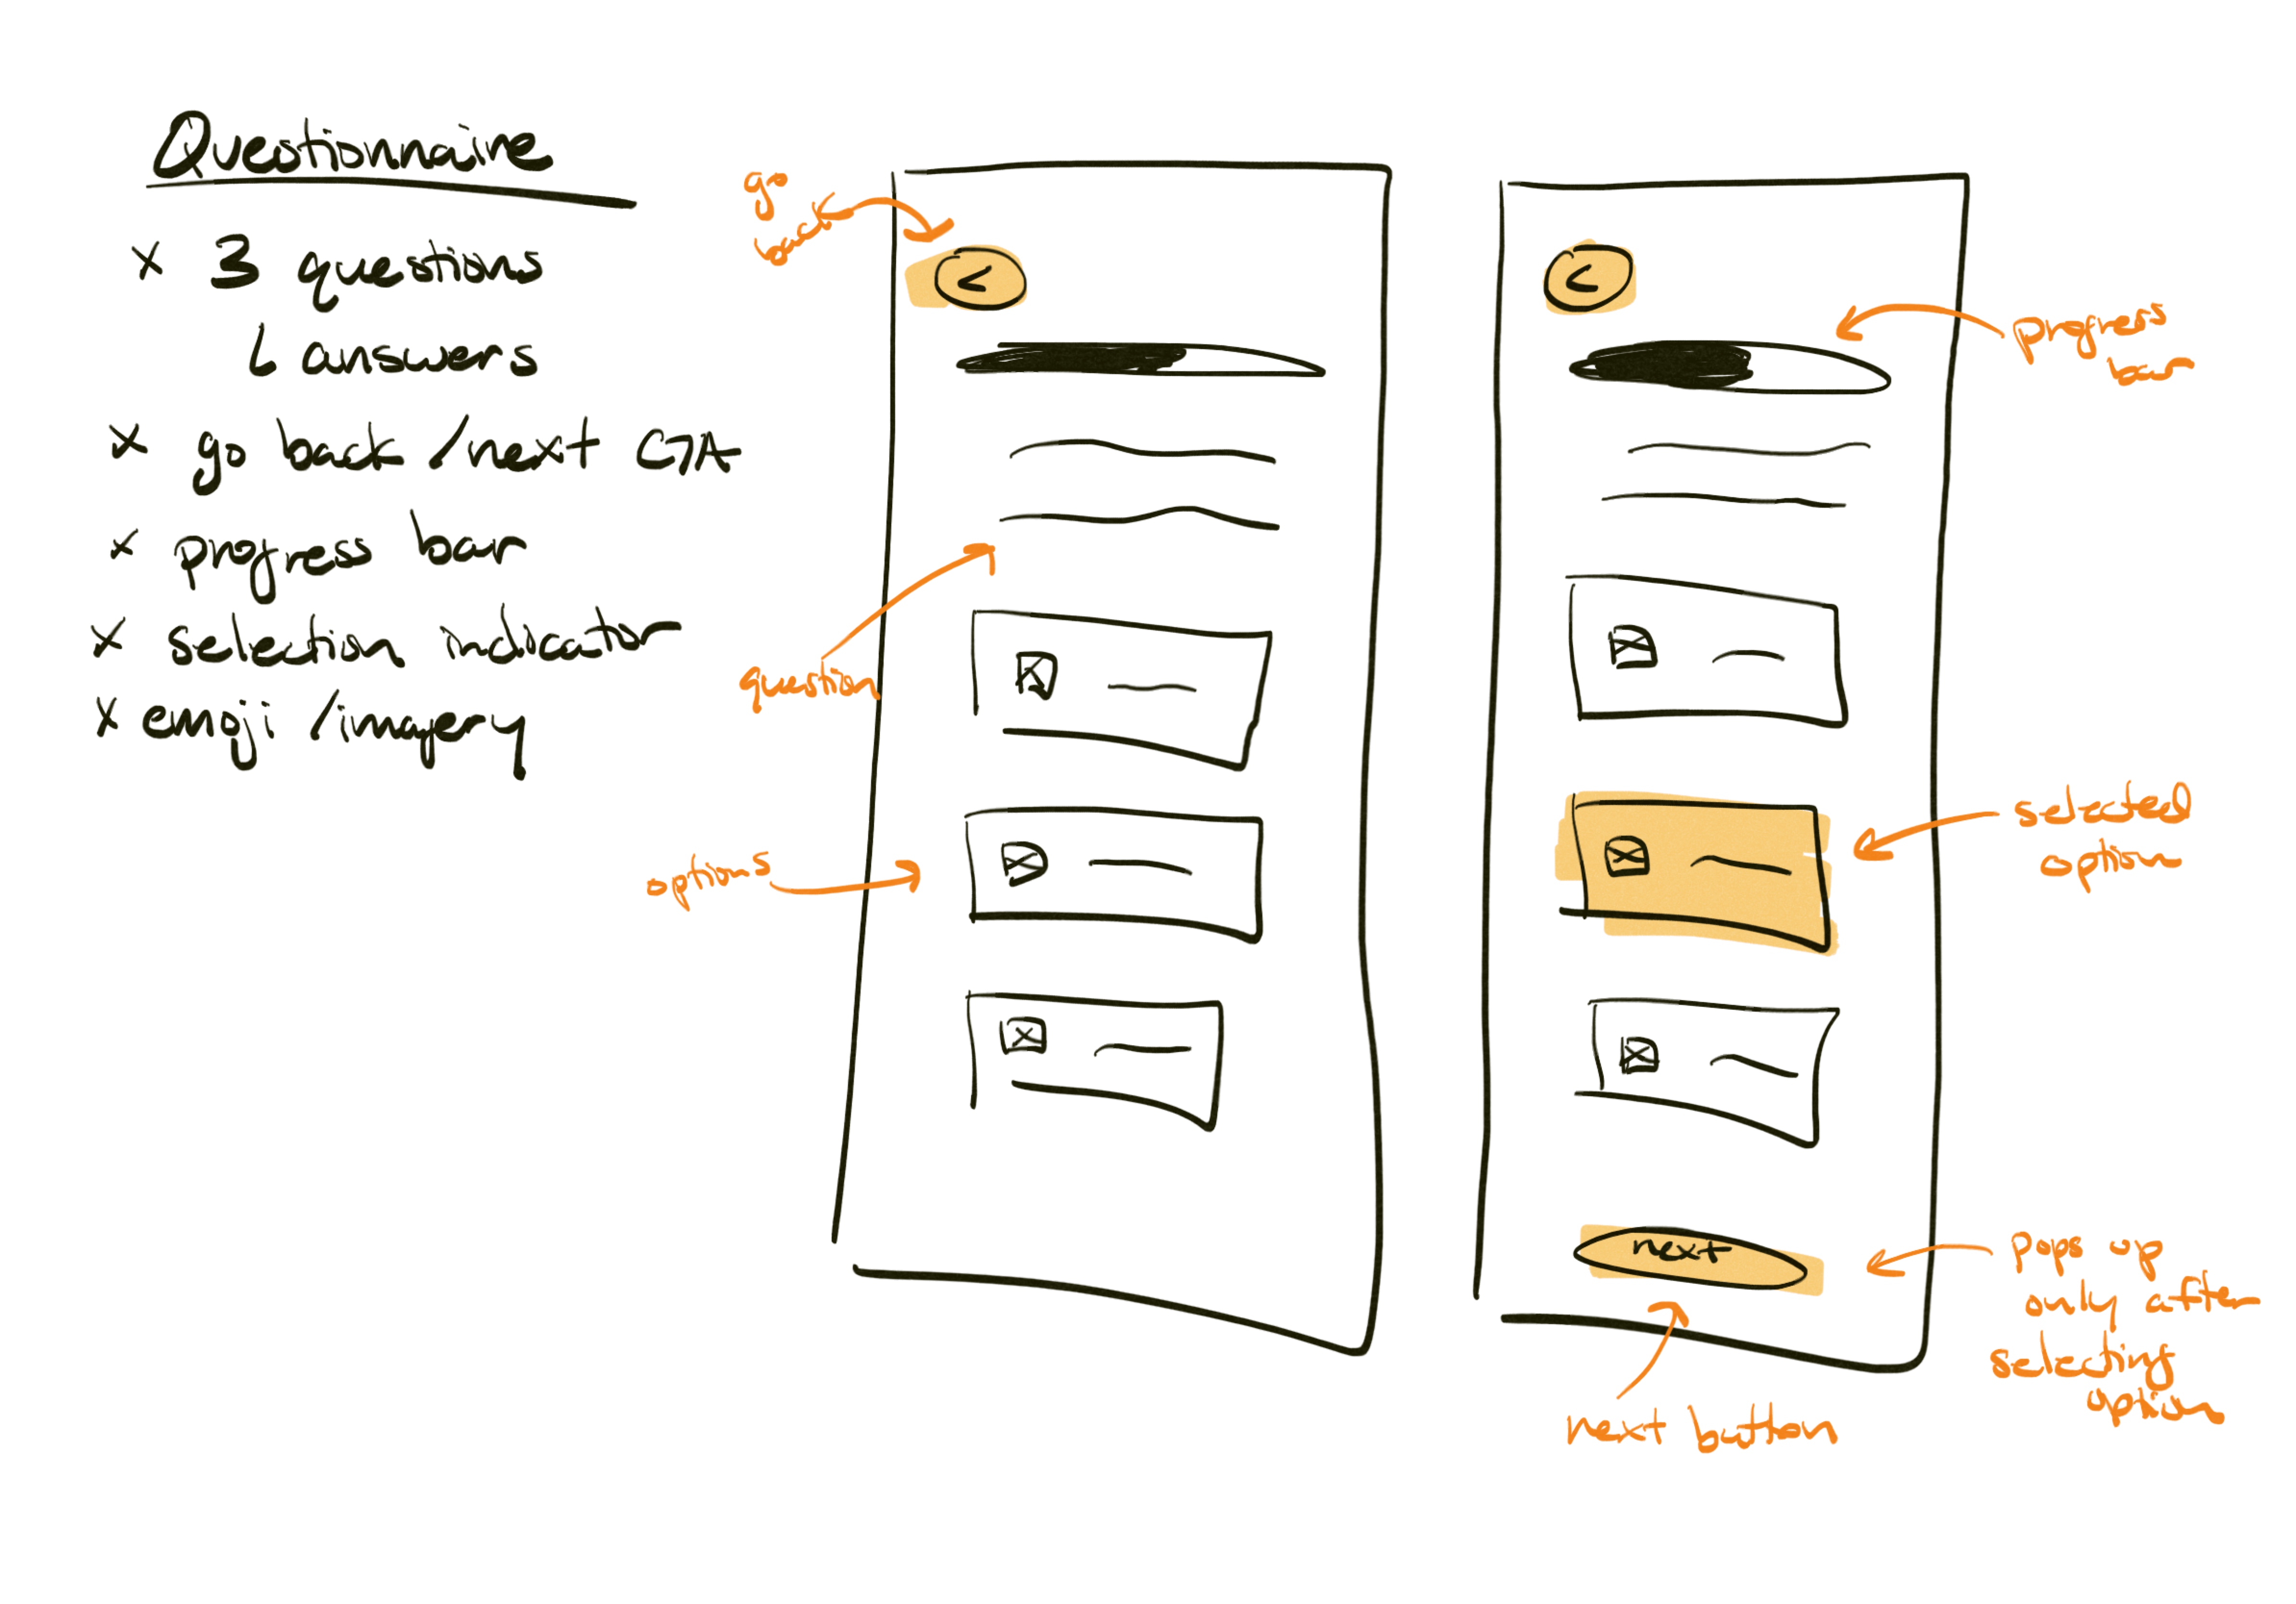 Questionnaire
x 3 questions
↳ answers
x go back / next CTA
x progress bar
x selection indicator
x emoji / imagery
go
back
<
question
options
<
progress
bar
selected
option
next
pops up
only after
selecting
option
next button